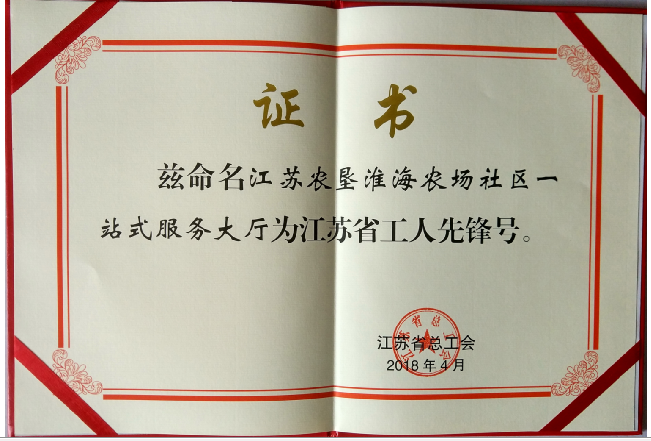 证书
兹命名江苏农垦淮海农场社区一
站式服务大厅为江苏省工人先锋号。
江苏省总工会
2018年4月